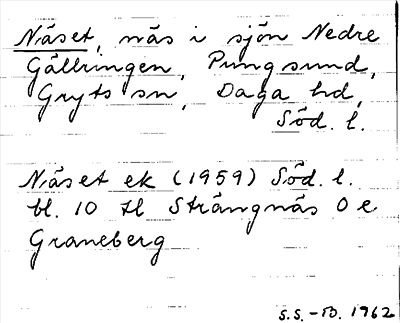 Näset, näs i sjön Nedre
Gällringen, Pungsund,
Gryts sn, Daga hd,
Söd. l.
Näset ek (1959) Söd. l.
bl. 10 tl Strängnäs O e
Graneberg
S.S.-B. 1962